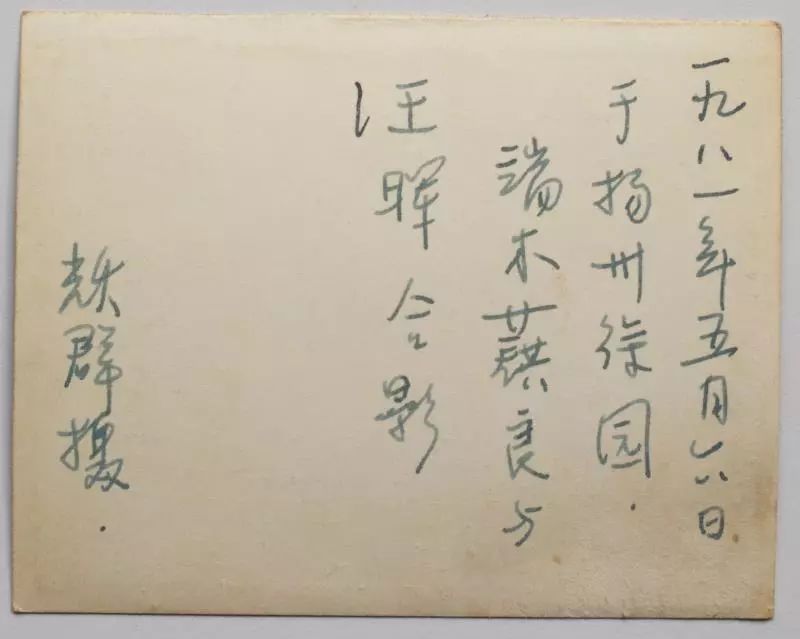 一九八一年五月六日
于扬州徐园.
端木蕻良与
汪晖合影
耀群摄.